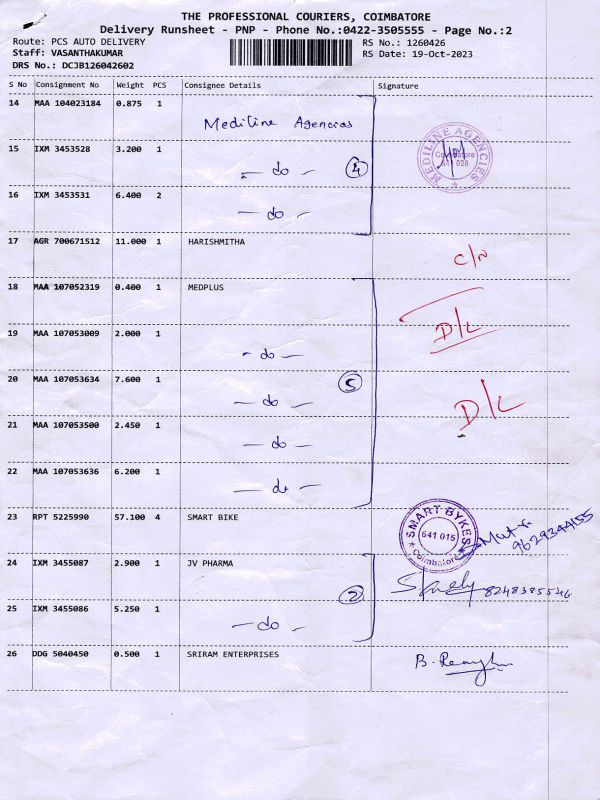 THE PROFESSIONAL COURIERS, COIMBATORE
Delivery Runsheet - PNP - Phone No.:0422-3505555 - Page No.:2
Route: PCS AUTO DELIVERY RS No.: 1260426
Staff: VASANTHAKUMAR RS Date: 19-Oct-2023
DRS No.: DCJB126042602
S No Consignment No Weight PCS Consignee Details Signature
14 MAA 104023184 0.875 1 Mediline Agencias
15 IXM 3453528 3.200 1 - do - 4
MEDILINE AGENCIES Coimbatore 641 028
16 IXM 3453531 6.400 2 - do -
17 AGR 700671512 11.000 1 HARISHMITHA C/N
18 MAA 107052319 0.400 1 MEDPLUS D/L
19 MAA 107053009 2.000 1 - do -
20 MAA 107053634 7.600 1 - do - 5 D/L
21 MAA 107053500 2.450 1 - do -
22 MAA 107053636 6.200 1 - do -
23 RPT 5225990 57.100 4 SMART BIKE SMART BYKES 641 015 Coimbatore 9629344155
24 IXM 3455087 2.900 1 JV PHARMA 2
25 IXM 3455086 5.250 1 - do -
26 DDG 5040450 0.500 1 SRIRAM ENTERPRISES